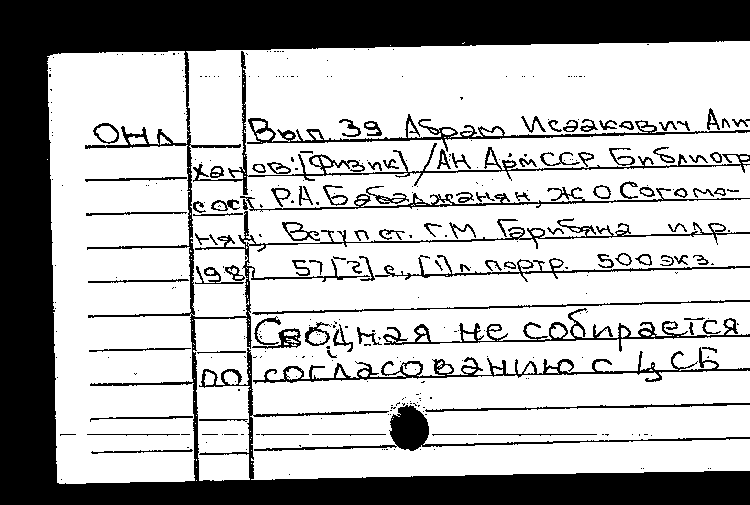 ОНЛ Вып. 39 Абрам Исаакович Али
ханов: [Физик] / АН АрмССР. Библиогр
сост. Р.А. Бабаджанян, Ж О Согомо-
нян; Вступ ст. Г.М. Гарибяна и др.
198 57, [2] с., [1] л. портр. 500 экз.
Сводная не собирается
по согласованию с ЦСБ